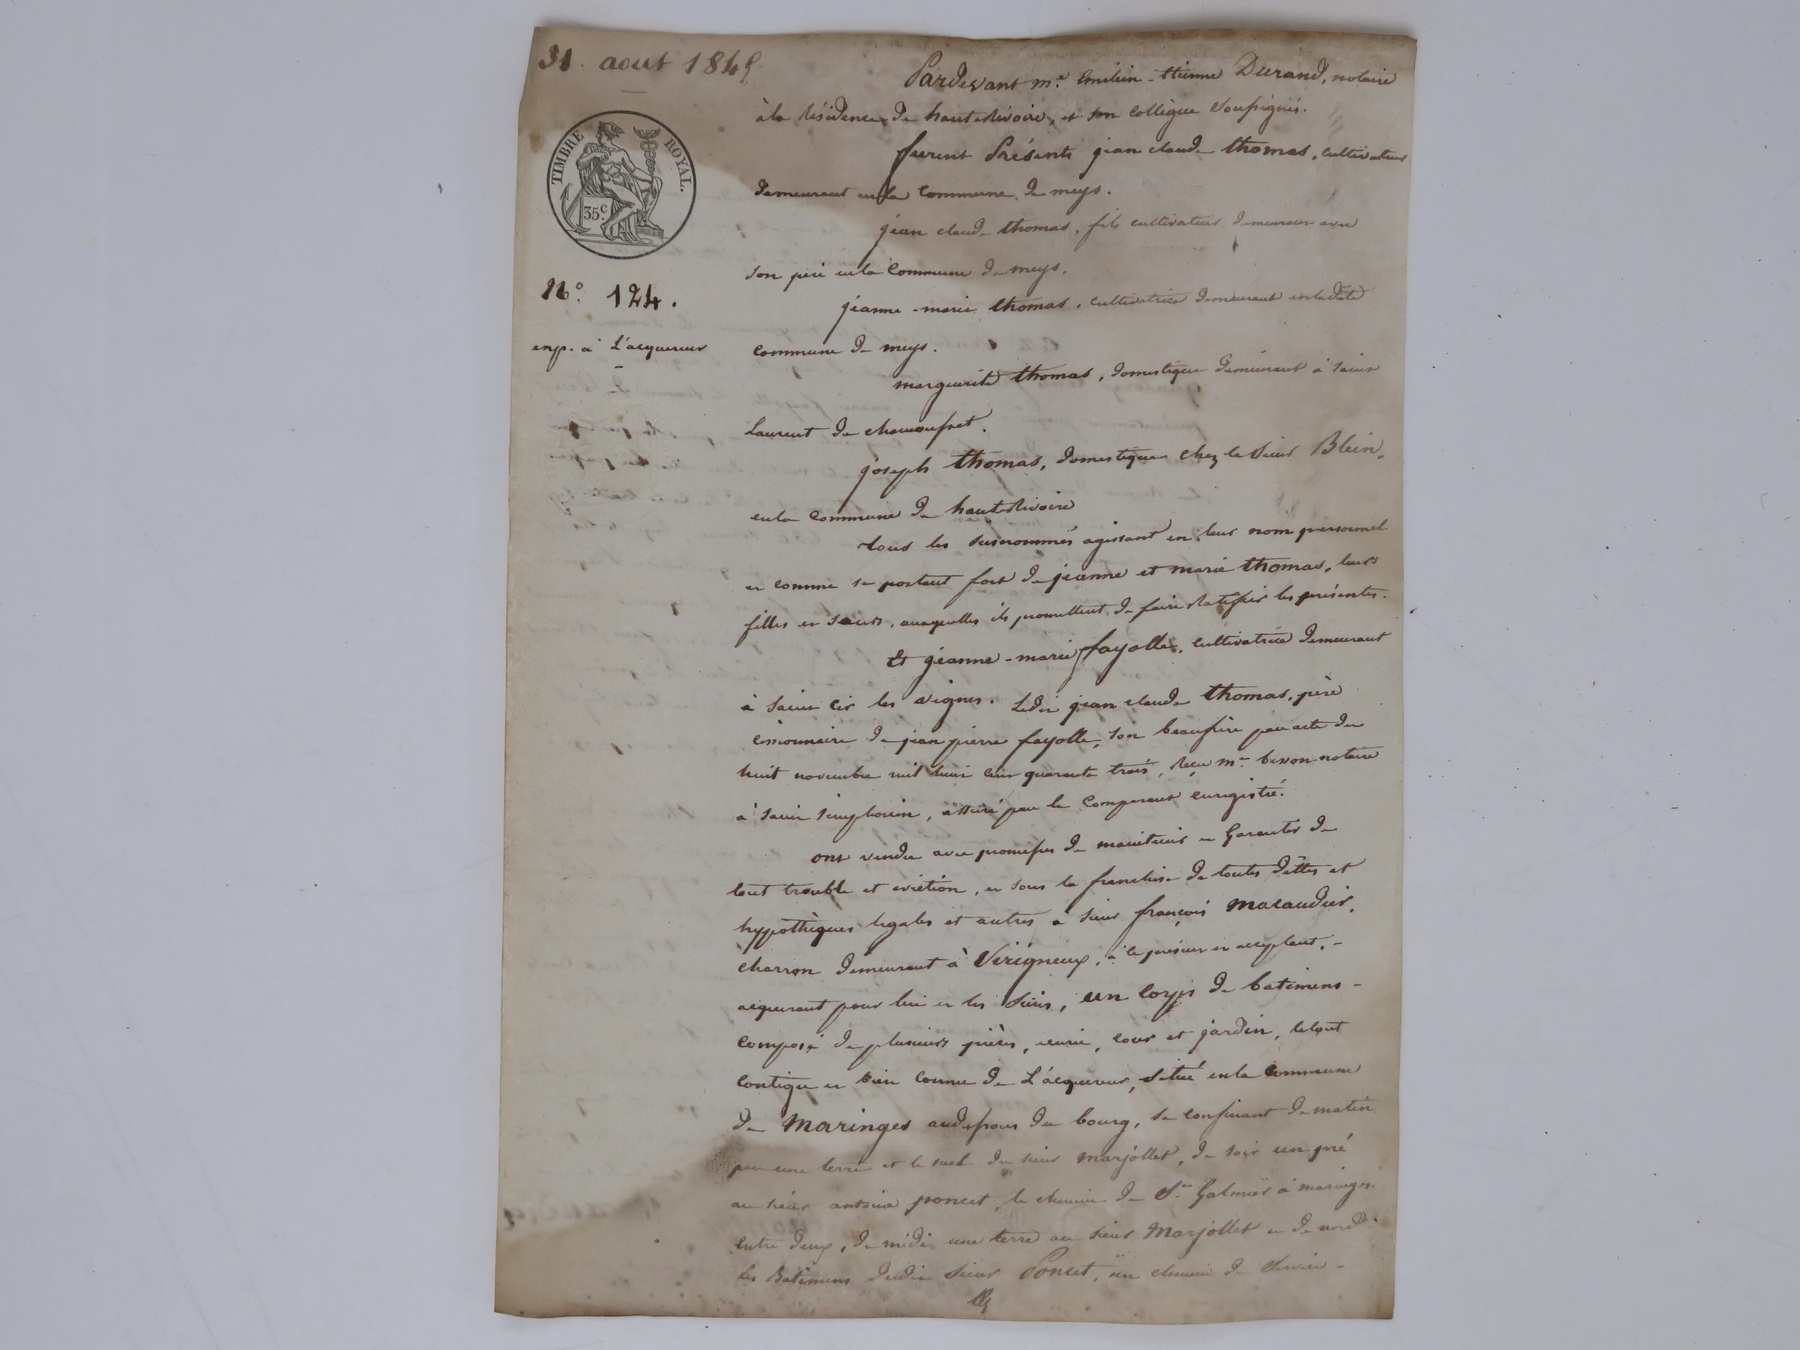 31. aout 1845
TIMBRE ROYAL.
35c.
No. 124.
exp. à L'acquereur
Pardevant me. Emilien-Etienne Durand, notaire
à la résidence de hauterivoire, et son collègue soussignés.
furent Présents jean claude thomas, cultivateur
demeurant en la commune de meys.
jean claude thomas, fils cultivateur demeurant avec
son père en la commune de meys.
jeanne-marie thomas, cultivatrice demeurant en ladite
commune de meys.
marguerite thomas, domestique demeurant à saint
Laurent de chamousset.
joseph thomas, domestique chez le sieur Blein,
en la commune de hauterivoire
tous les susnommés agissant en leur nom personnel
et comme se portant fort de jeanne et marie thomas, leurs
filles et sœurs, auxquelles ils promettent de faire ratifier les présentes.
Et jeanne-marie fayolle, cultivatrice demeurant
à saint cir les vignes. Ledit jean claude thomas, père
cessionnaire de jean pierre fayolle, son beaufrère par acte du
huit novembre mil huit cent quarante trois, reçu me. notaire
à saint simphorien, assuré par le comparant enregistré.
ont vendu avec promesses de maintenir et garantir de
tout trouble et eviction, et sous la franchise de toutes dettes et
hypothèques légales et autres à sieur françois macaudier,
charron demeurant à Virigneux, à ce présent et acceptant,
acquerant pour lui et les siens, un corps de batimens
composé de plusieurs pièces, écurie, cour et jardin, le tout
contigu et bien connu de L'acquereur, situé en la commune
de Maringes audessous du bourg, se confinant de matin
par une terre et le suel du sieur marjollet, de soir un pré
au sieur antoine poncet, le chemin de St. Galmier à maringes
entre deux, de midi une terre au sieur Marjollet et de nord
les Batimens dudit sieur Poncet, un chemin de